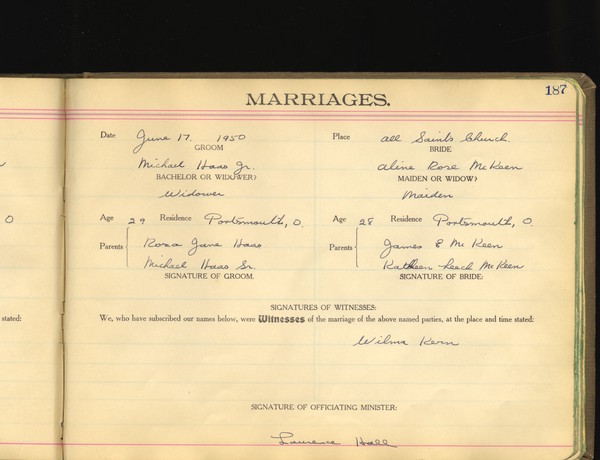 187
MARRIAGES.
Date June 17. 1950 Place All Saints Church.
GROOM BRIDE
Michael Haas Jr. Aline Rose McKeen
BACHELOR OR WIDOWER? MAIDEN OR WIDOW?
Widower Maiden
O Age 29 Residence Portsmouth, O. Age 28 Residence Portsmouth, O.
Parents Rosa Jane Haas Parents James E McKeen
Michael Haas Sr. Kathleen Leech McKeen
SIGNATURE OF GROOM. SIGNATURE OF BRIDE:
SIGNATURES OF WITNESSES:
stated: We, who have subscribed our names below, were Witnesses of the marriage of the above named parties, at the place and time stated:
Wilma Kern
SIGNATURE OF OFFICIATING MINISTER:
Lawrence Hall